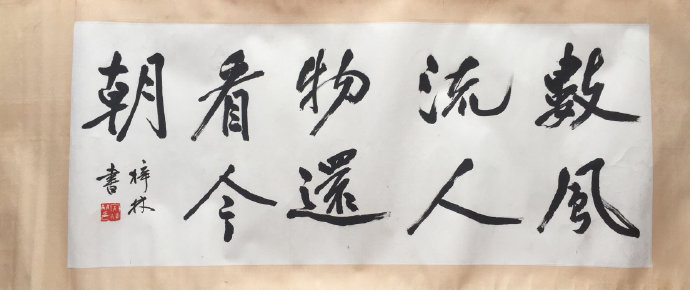 數風
流人
物還
看今
朝
梓林
書